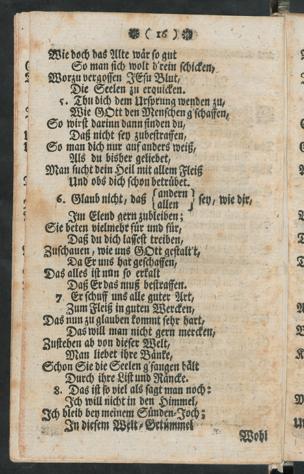 ( 16 )
Wie doch das Alte wär so gut
So man sich wolt d'rein schicken,
Worzu vergossen JEsu Blut,
Die Seelen zu erquicken.
5. Thu dich dem Ursprung wenden zu,
Wie GOtt den Menschen g'schaffen,
So wirst darinn dann finden du,
Daß nicht sey zubestraffen,
So man dich nur auf anders weiß,
Als du bisher geliebet,
Man sucht dein Heil mit allem Fleiß
Und obs dich schon betrübet.
6. Glaub nicht, daß {andern allen} sey, wie dir,
Im Elend gern zubleiben;
Sie beten vielmehr für und für,
Daß du dich lassest treiben,
Zuschauen, wie uns GOtt gestalt't,
Da Er uns hat geschaffen,
Das alles ist nun so erkalt
Daß Er das muß bestraffen.
7. Er schuff uns alle guter Art,
Zum Fleiß in guten Wercken,
Das nun zu glauben kommt sehr hart,
Das will man nicht gern mercken,
Zustehen ab von dieser Welt,
Man liebet ihre Bänke,
Schon Sie die Seelen g'fangen hält
Durch ihre List und Räncke.
8. Das ist so viel als sagt man noch:
Ich will nicht in den Himmel,
Ich bleib bey meinem Sünden-Joch;
In diesem Welt-Getümmel
Wohl